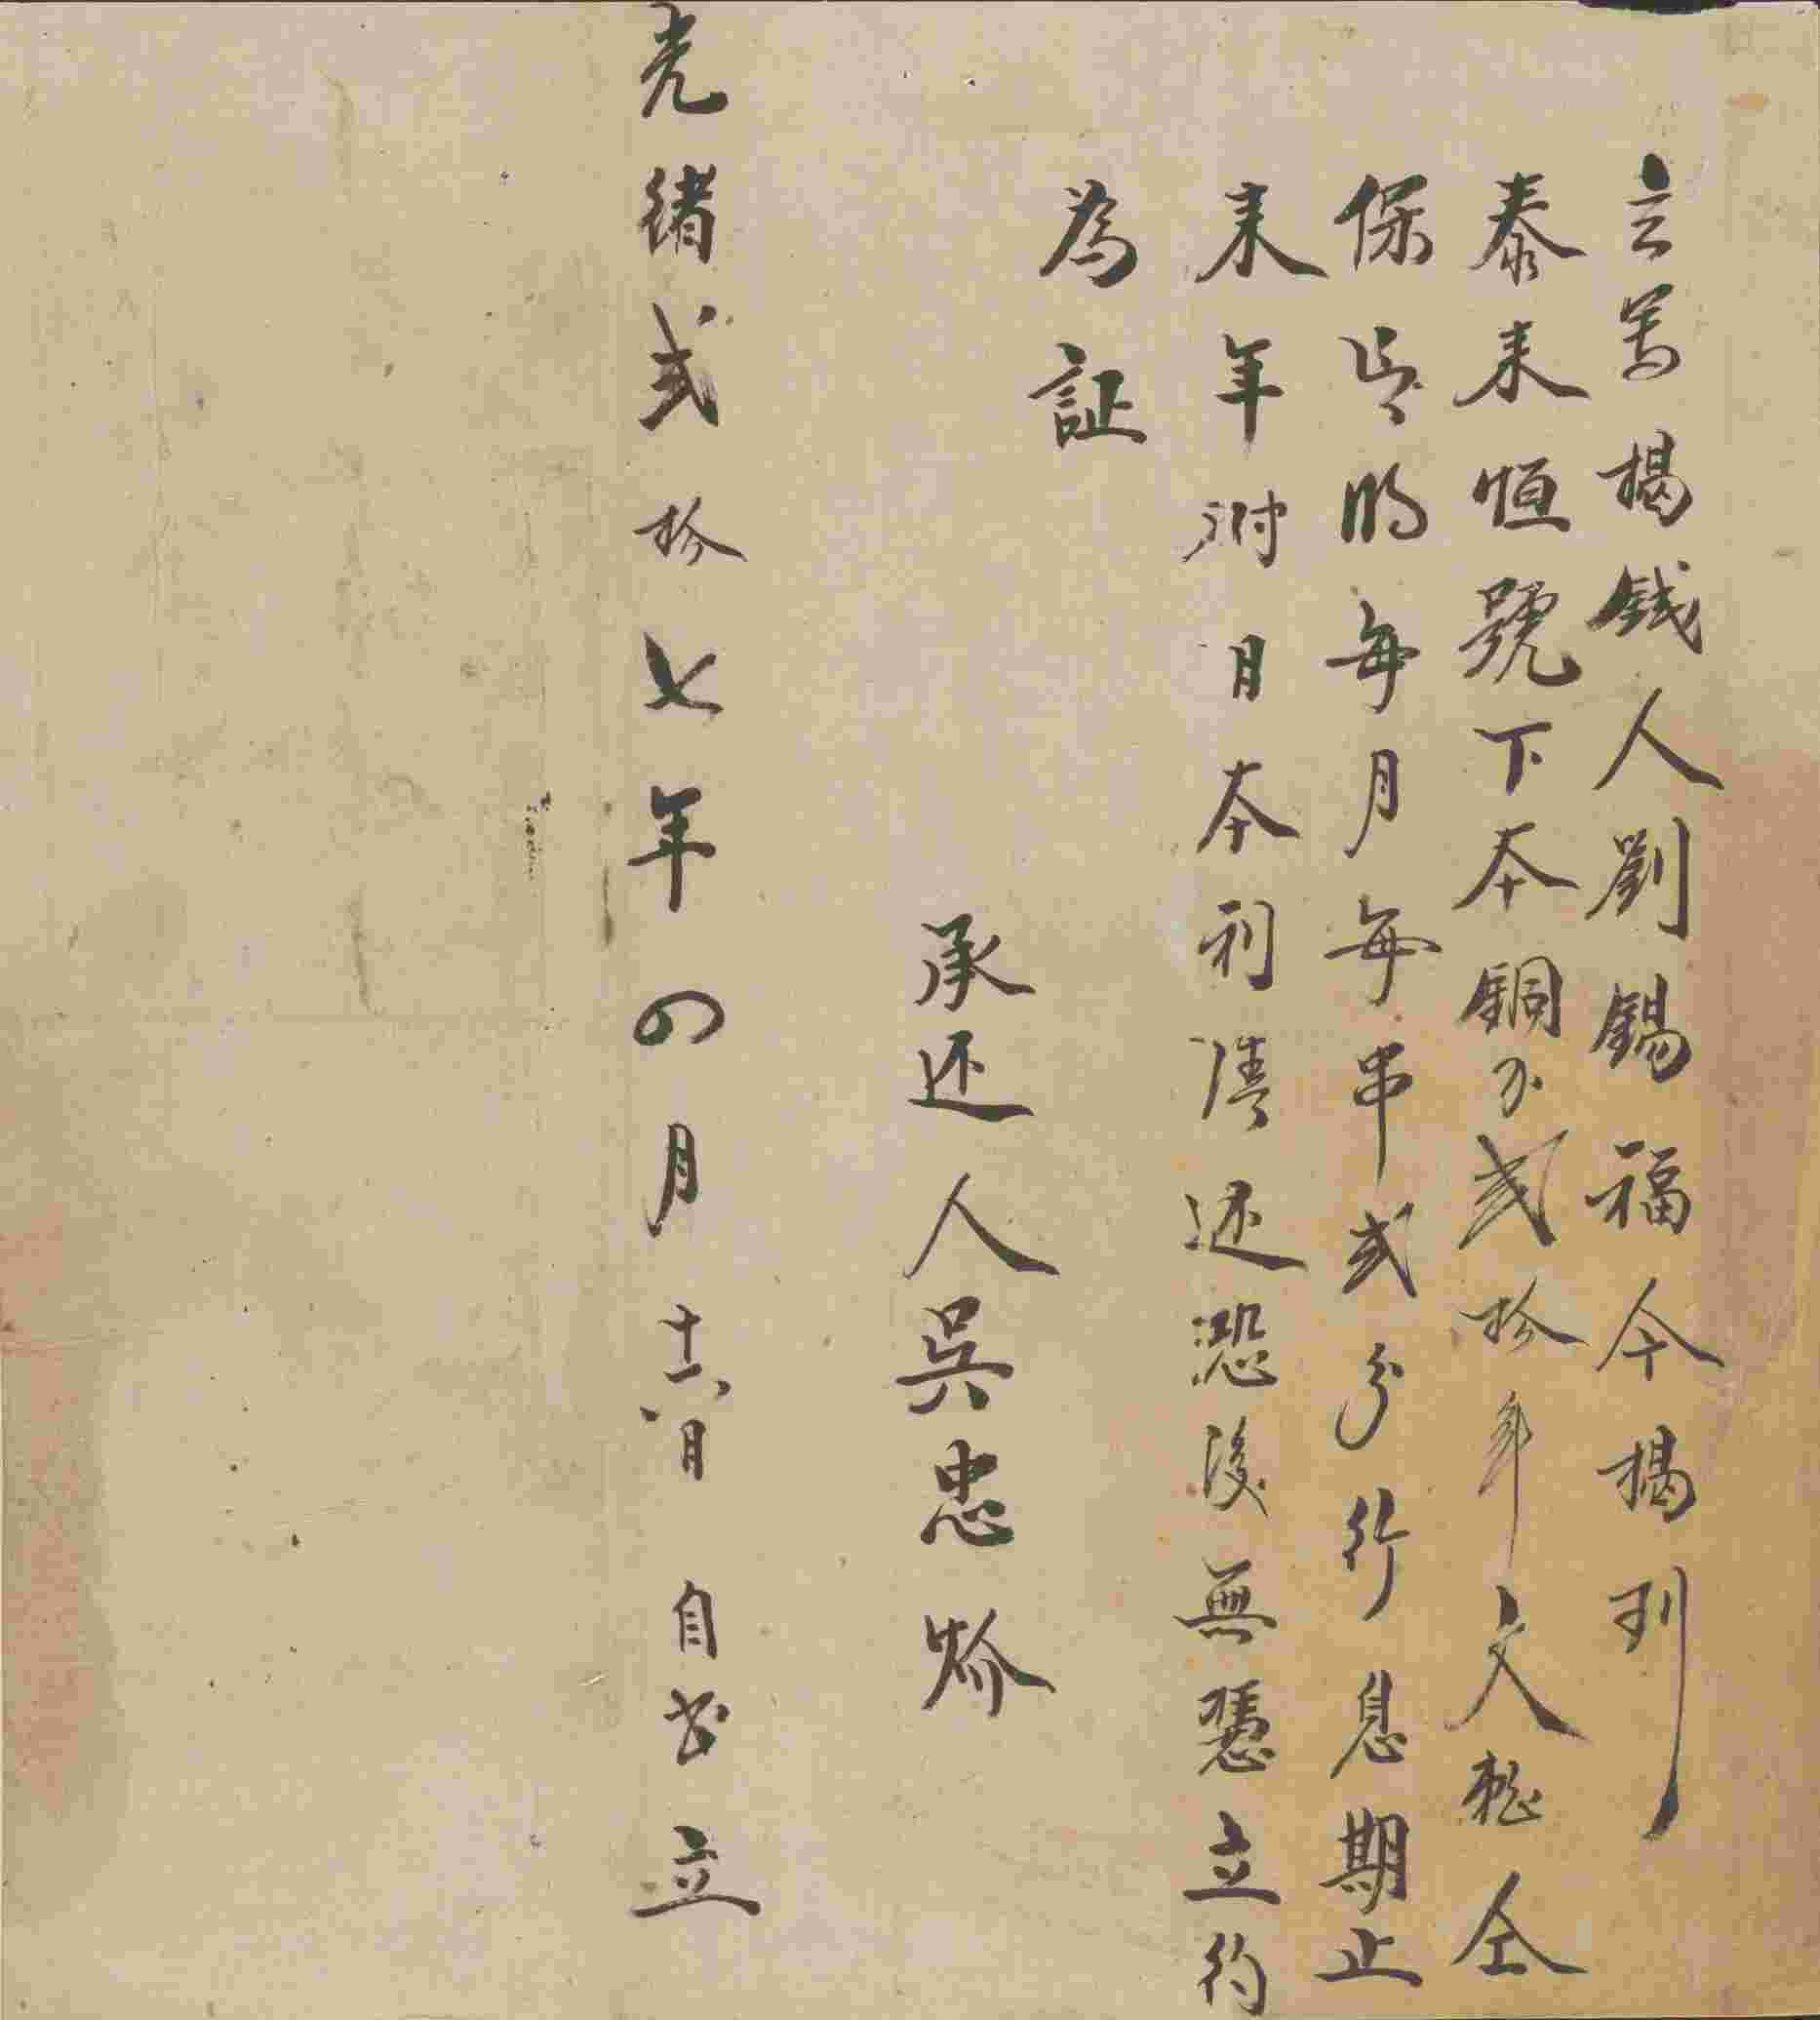 立寫揭錢人劉錫福今揭到
泰来恒號下本銅不弍拾千文整仝
保言明每月每串弍分行息期止
来年对月本利清还恐後無憑立約
為証
承还人吳忠炌
光緒弍拾七年四月十六日 自书立